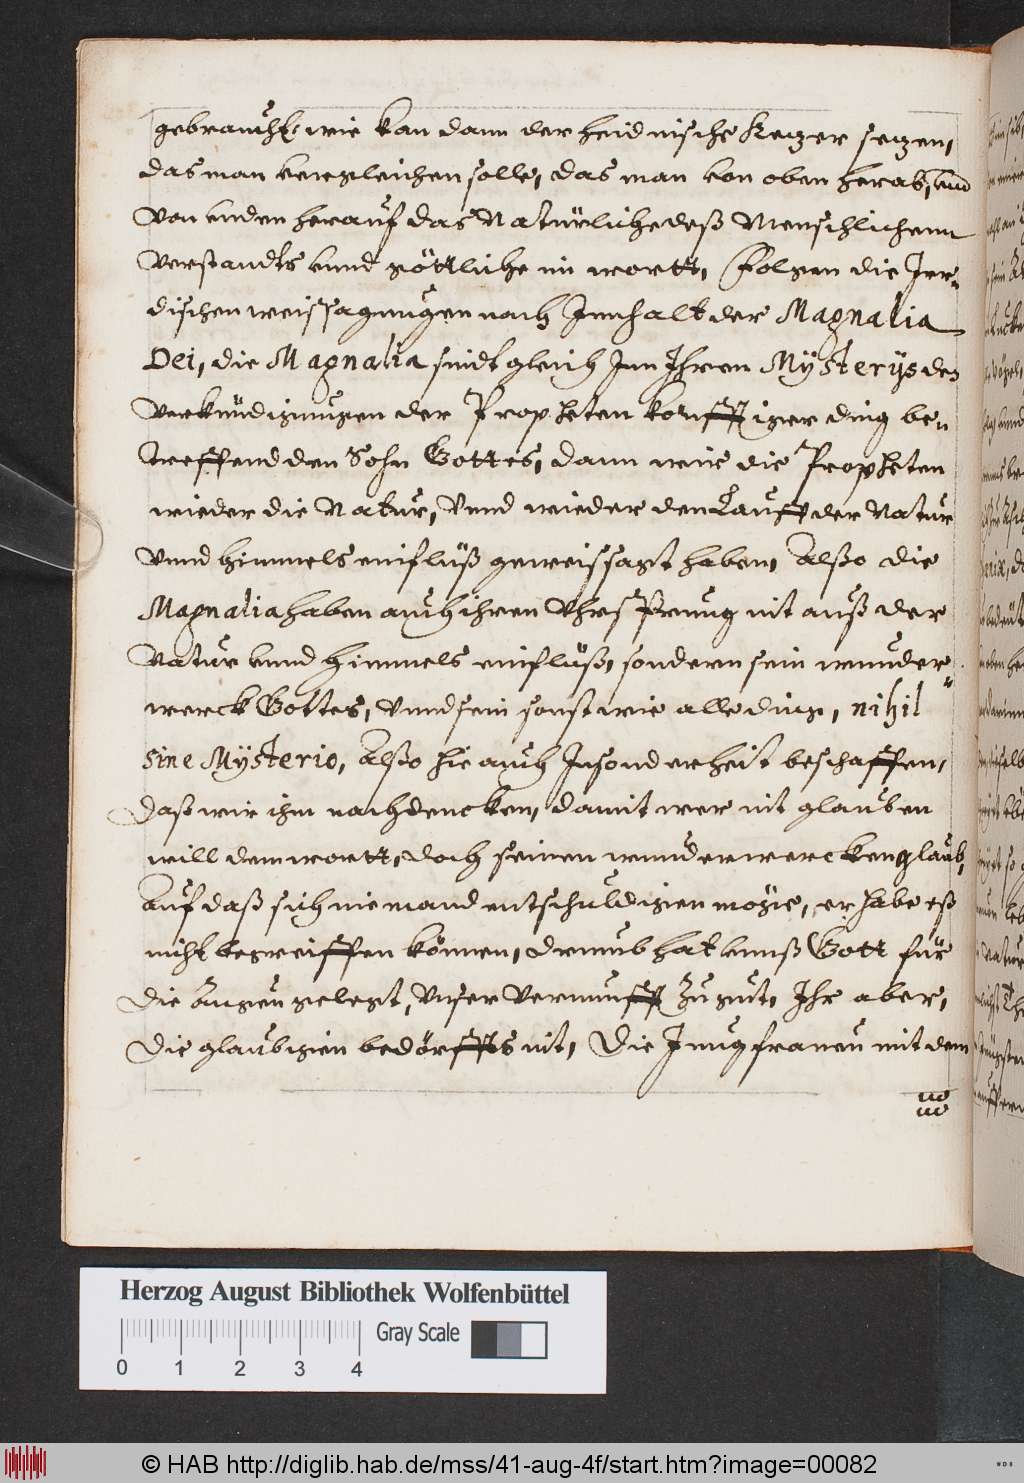 gebraucht, wie kan dann der heidnische Ketzer setzen,
das man vergleichen solle, das man von oben herab, vnd
von vnden herauf das Natürliche deß Menschlichenn
verstandts vnnd göttliche im wortt, Folgen die Irr-
dischen weissagungen nach Innhalt der Magnalia
Dei, die Magnalia sindt gleich Inn Ihren Mÿsterÿs den
verkündigungen der Propheten künfftiger ding be-
treffend den Sohn Gottes, dann wie die Propheten
wieder die Natur, vnnd wieder den Lauff der Natur
vnnd himmels einfluß geweissagt haben, Also die
Magnalia haben auch ihren Vhrsprung nit auß der
Natur vnnd himmels einfluß, sondern sein wunder-
werck Gottes, vnnd sein sonst wie alle ding, nihil
sine Mÿsterio, Also hie auch Insonderheit beschaffen,
daß wir ihm nachdencken, damit wer nit glauben
will dem wortt, doch seinen wunderwercken glaub,
Auf daß sich niemand entschuldigen möge, er habe eß
nicht begreiffen können, drumb hat vnnß Gott für
die Augen gelegt, vnser vernunfft zu gut, Ihr aber,
die glaubigen bedörffts nit, Die Jungfrauen mit dem
Herzog August Bibliothek Wolfenbüttel
Gray Scale
0 1 2 3 4
© HAB http://diglib.hab.de/mss/41-aug-4f/start.htm?image=00082